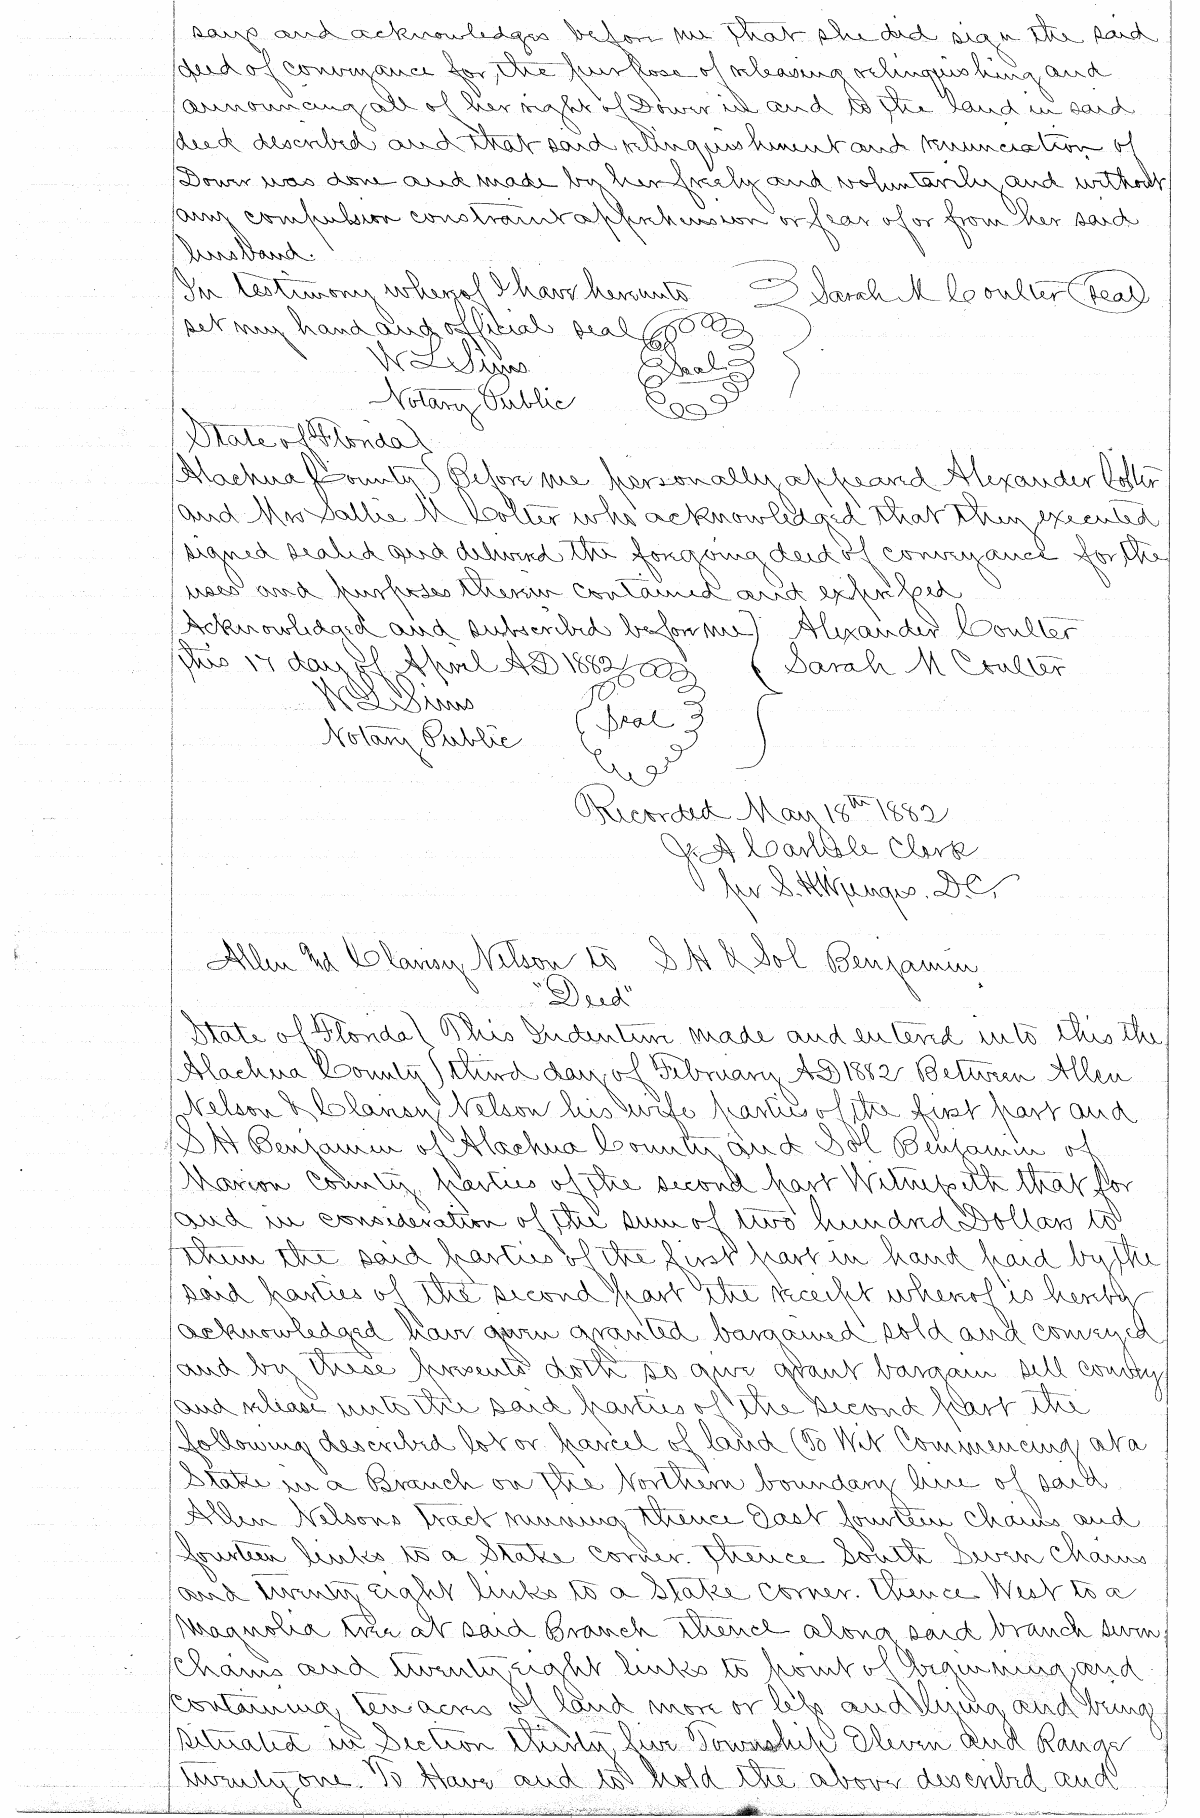 says and acknowledges before me that she did sign the said
deed of conveyance for the purpose of releasing relinquishing and
announcing all of her right of Dower in and to the land in said
deed described and that said relinquishment and renunciation of
Dower was done and made by her freely and voluntarily and without
any compulsion constraint apprehension or fear of or from her said
husband.
In testimony whereof I have hereunto Sarah M Coulter Seal
set my hand and official seal
W L Sims Seal
Notary Public
State of Florida
Alachua County Before me personally appeared Alexander Colter
and Mrs Sallie M Colter who acknowledged that they executed
signed sealed and delivered the foregoing deed of conveyance for the
uses and purposes therein contained and expressed
Acknowledged and subscribed before me Alexander Coulter
this 17 day of April AD 1882 Sarah M Coulter
W L Sims
Notary Public Seal
Recorded May 18th 1882
J. A Carlisle Clerk
per S. H. D.C.
Allen & Clarisy Nelson to S H & Sol Benjamin
"Deed"
State of Florida This Indenture made and entered into this the
Alachua County third day of February AD 1882 Between Allen
Nelson & Clarisy Nelson his wife parties of the first part and
S H Benjamin of Alachua County and Sol Benjamin of
Marion County parties of the second part Witnesseth that for
and in consideration of the sum of two hundred Dollars to
them the said parties of the first part in hand paid by the
said parties of the second part the receipt whereof is hereby
acknowledged have given granted bargained sold and conveyed
and by these presents doth so give grant bargain sell convey
and release unto the said parties of the second part the
following described lot or parcel of land (To Wit Commencing at a
Stake in a Branch on the Northern boundary line of said
Allen Nelsons tract running thence East fourteen chains and
fourteen links to a Stake corner. Thence South Seven Chains
and twenty eight links to a Stake corner. thence West to a
Magnolia tree at said Branch thence along said branch seven
chains and twenty eight links to point of beginning and
containing ten acres of land more or less and lying and being
situated in Section thirty five Township Eleven and Range
twenty one. To Have and to hold the above described and